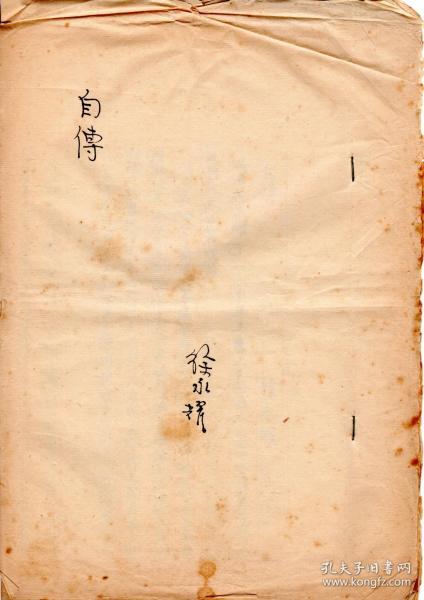 自傳
徐永耀
孔夫子旧书网
www.kongfz.com